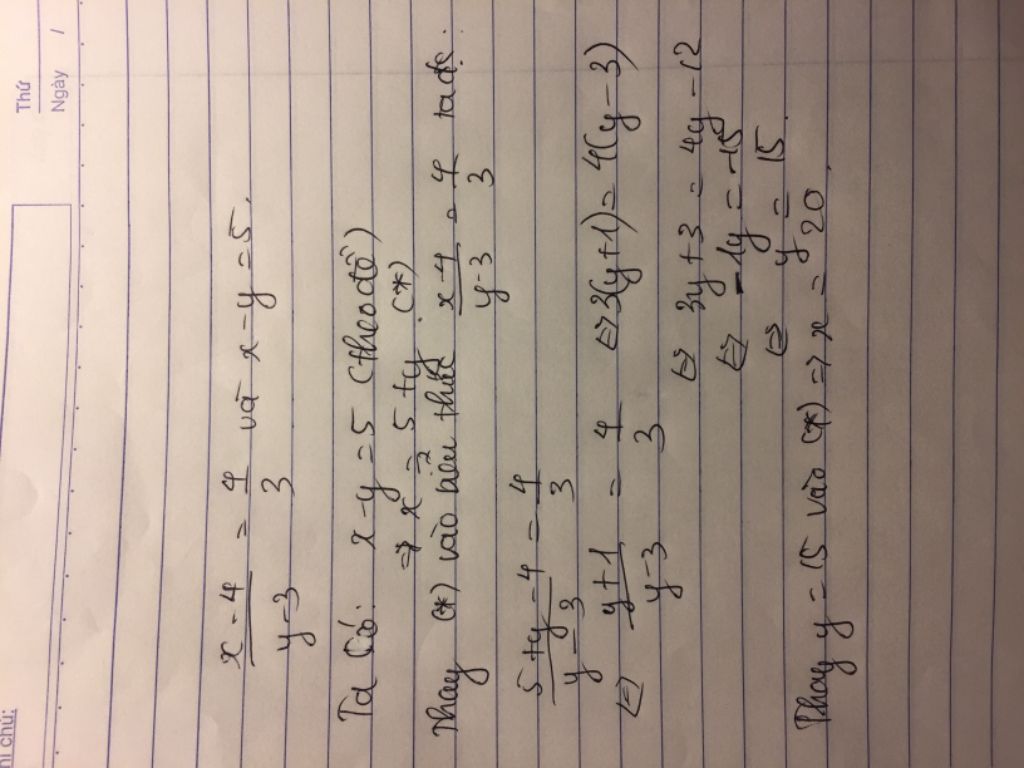 Thứ
Ngày /
hi chú:
x - 4 / y - 3 = 4 / 3 và x - y = 5.
Ta Có: x - y = 5 (theo đề)
=> x = 5 + y (*)
Thay (*) vào biểu thức x - 4 / y - 3 = 4 / 3 ta đc:
5 + y - 4 / y - 3 = 4 / 3
<=> y + 1 / y - 3 = 4 / 3 <=> 3(y + 1) = 4(y - 3)
<=> 3y + 3 = 4y - 12
<=> -1y = -15
<=> y = 15
Thay y = 15 vào (*) => x = 20.